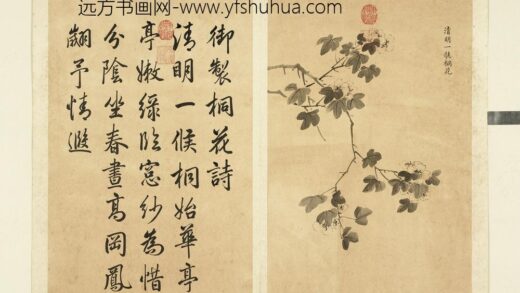 远方书画网=www.yfshuhua.com
清明一候桐花
御製桐花詩
清明一候桐始華亭
亭嫩綠臨窓紗為惜
分陰坐春晝高岡鳳
翽予情遐